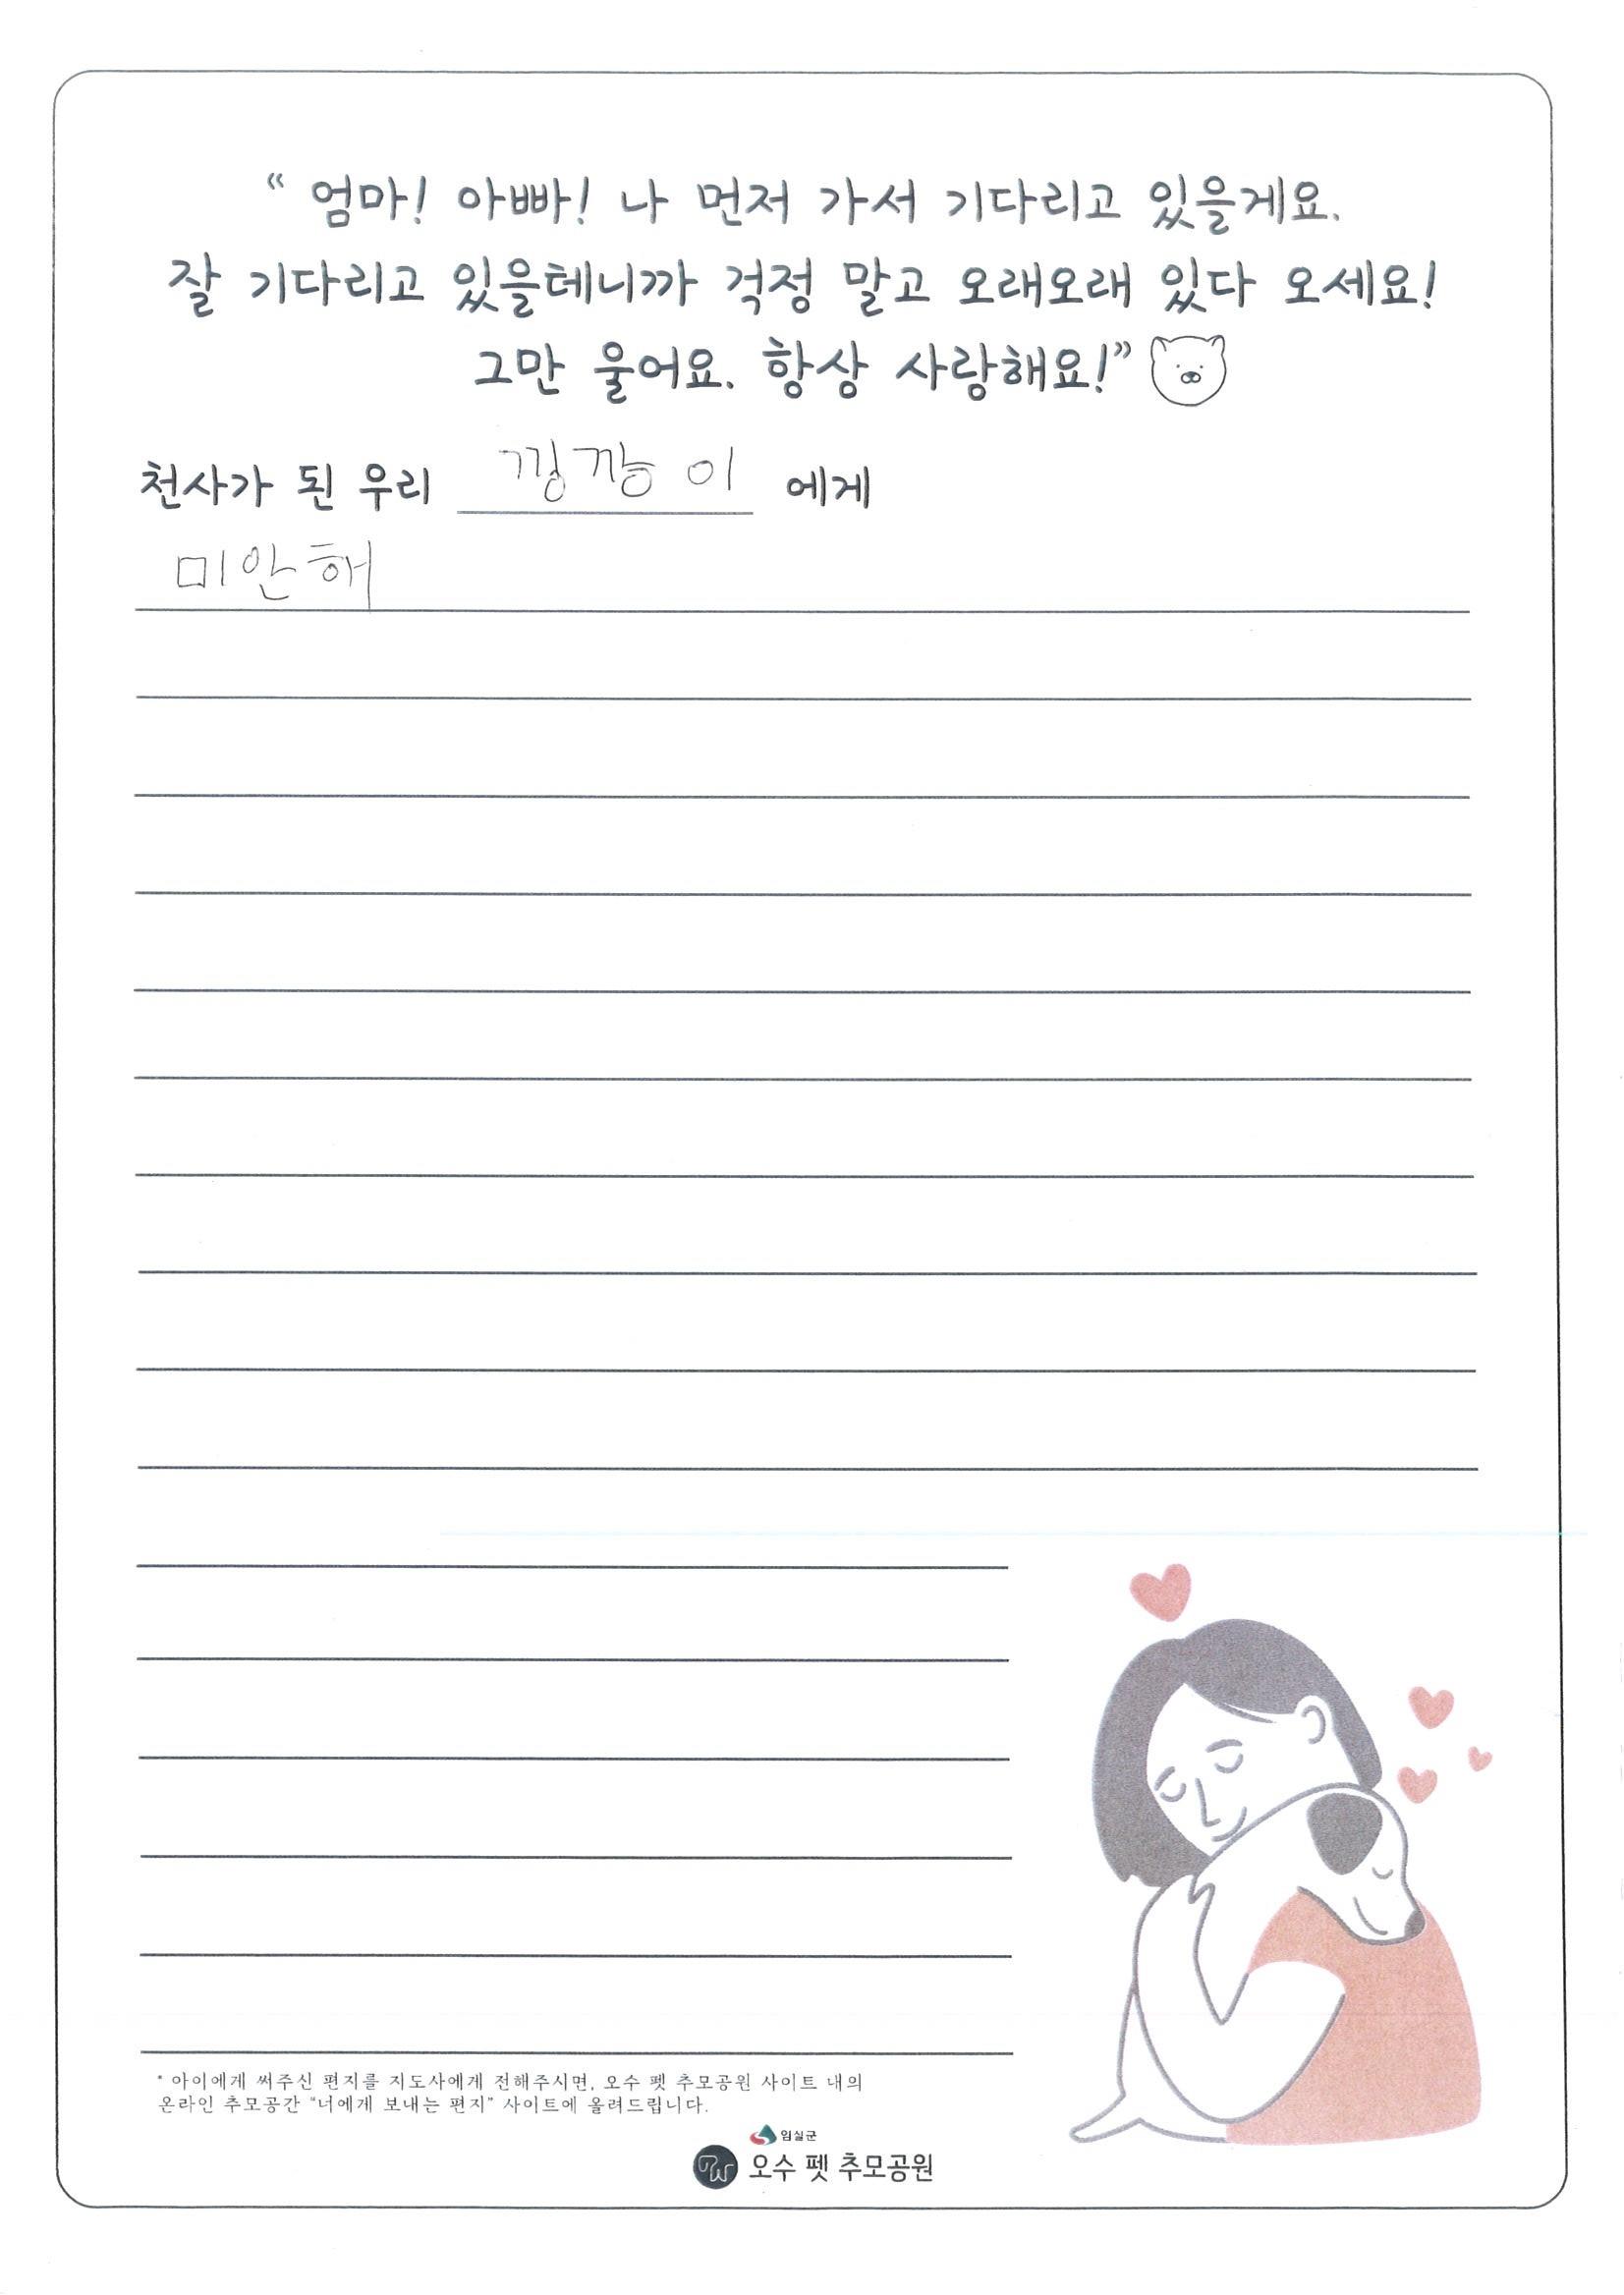 “ 엄마! 아빠! 나 먼저 가서 기다리고 있을게요.
잘 기다리고 있을테니까 걱정 말고 오래오래 있다 오세요!
그만 울어요. 항상 사랑해요!”
천사가 된 우리 낑깡이 에게
미안해
* 아이에게 써주신 편지를 지도사에게 전해주시면, 오수 펫 추모공원 사이트 내의
온라인 추모공간 “너에게 보내는 편지” 사이트에 올려드립니다.
임실군
오수 펫 추모공원